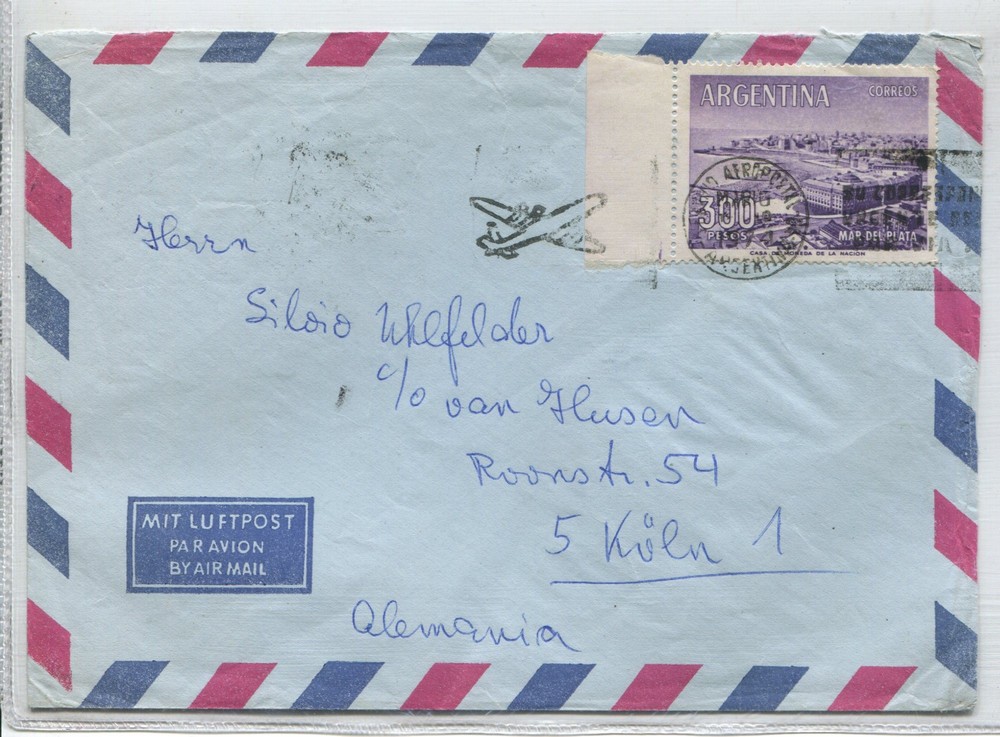 ARGENTINA CORREOS
300
PESOS MAR DEL PLATA
CASA DE MONEDA DE LA NACION
ARGENTINA
Herrn
Silvio Uhlfelder
c/o van Husen
Roonstr. 54
5 Köln 1
MIT LUFTPOST
PAR AVION
BY AIR MAIL
Alemania